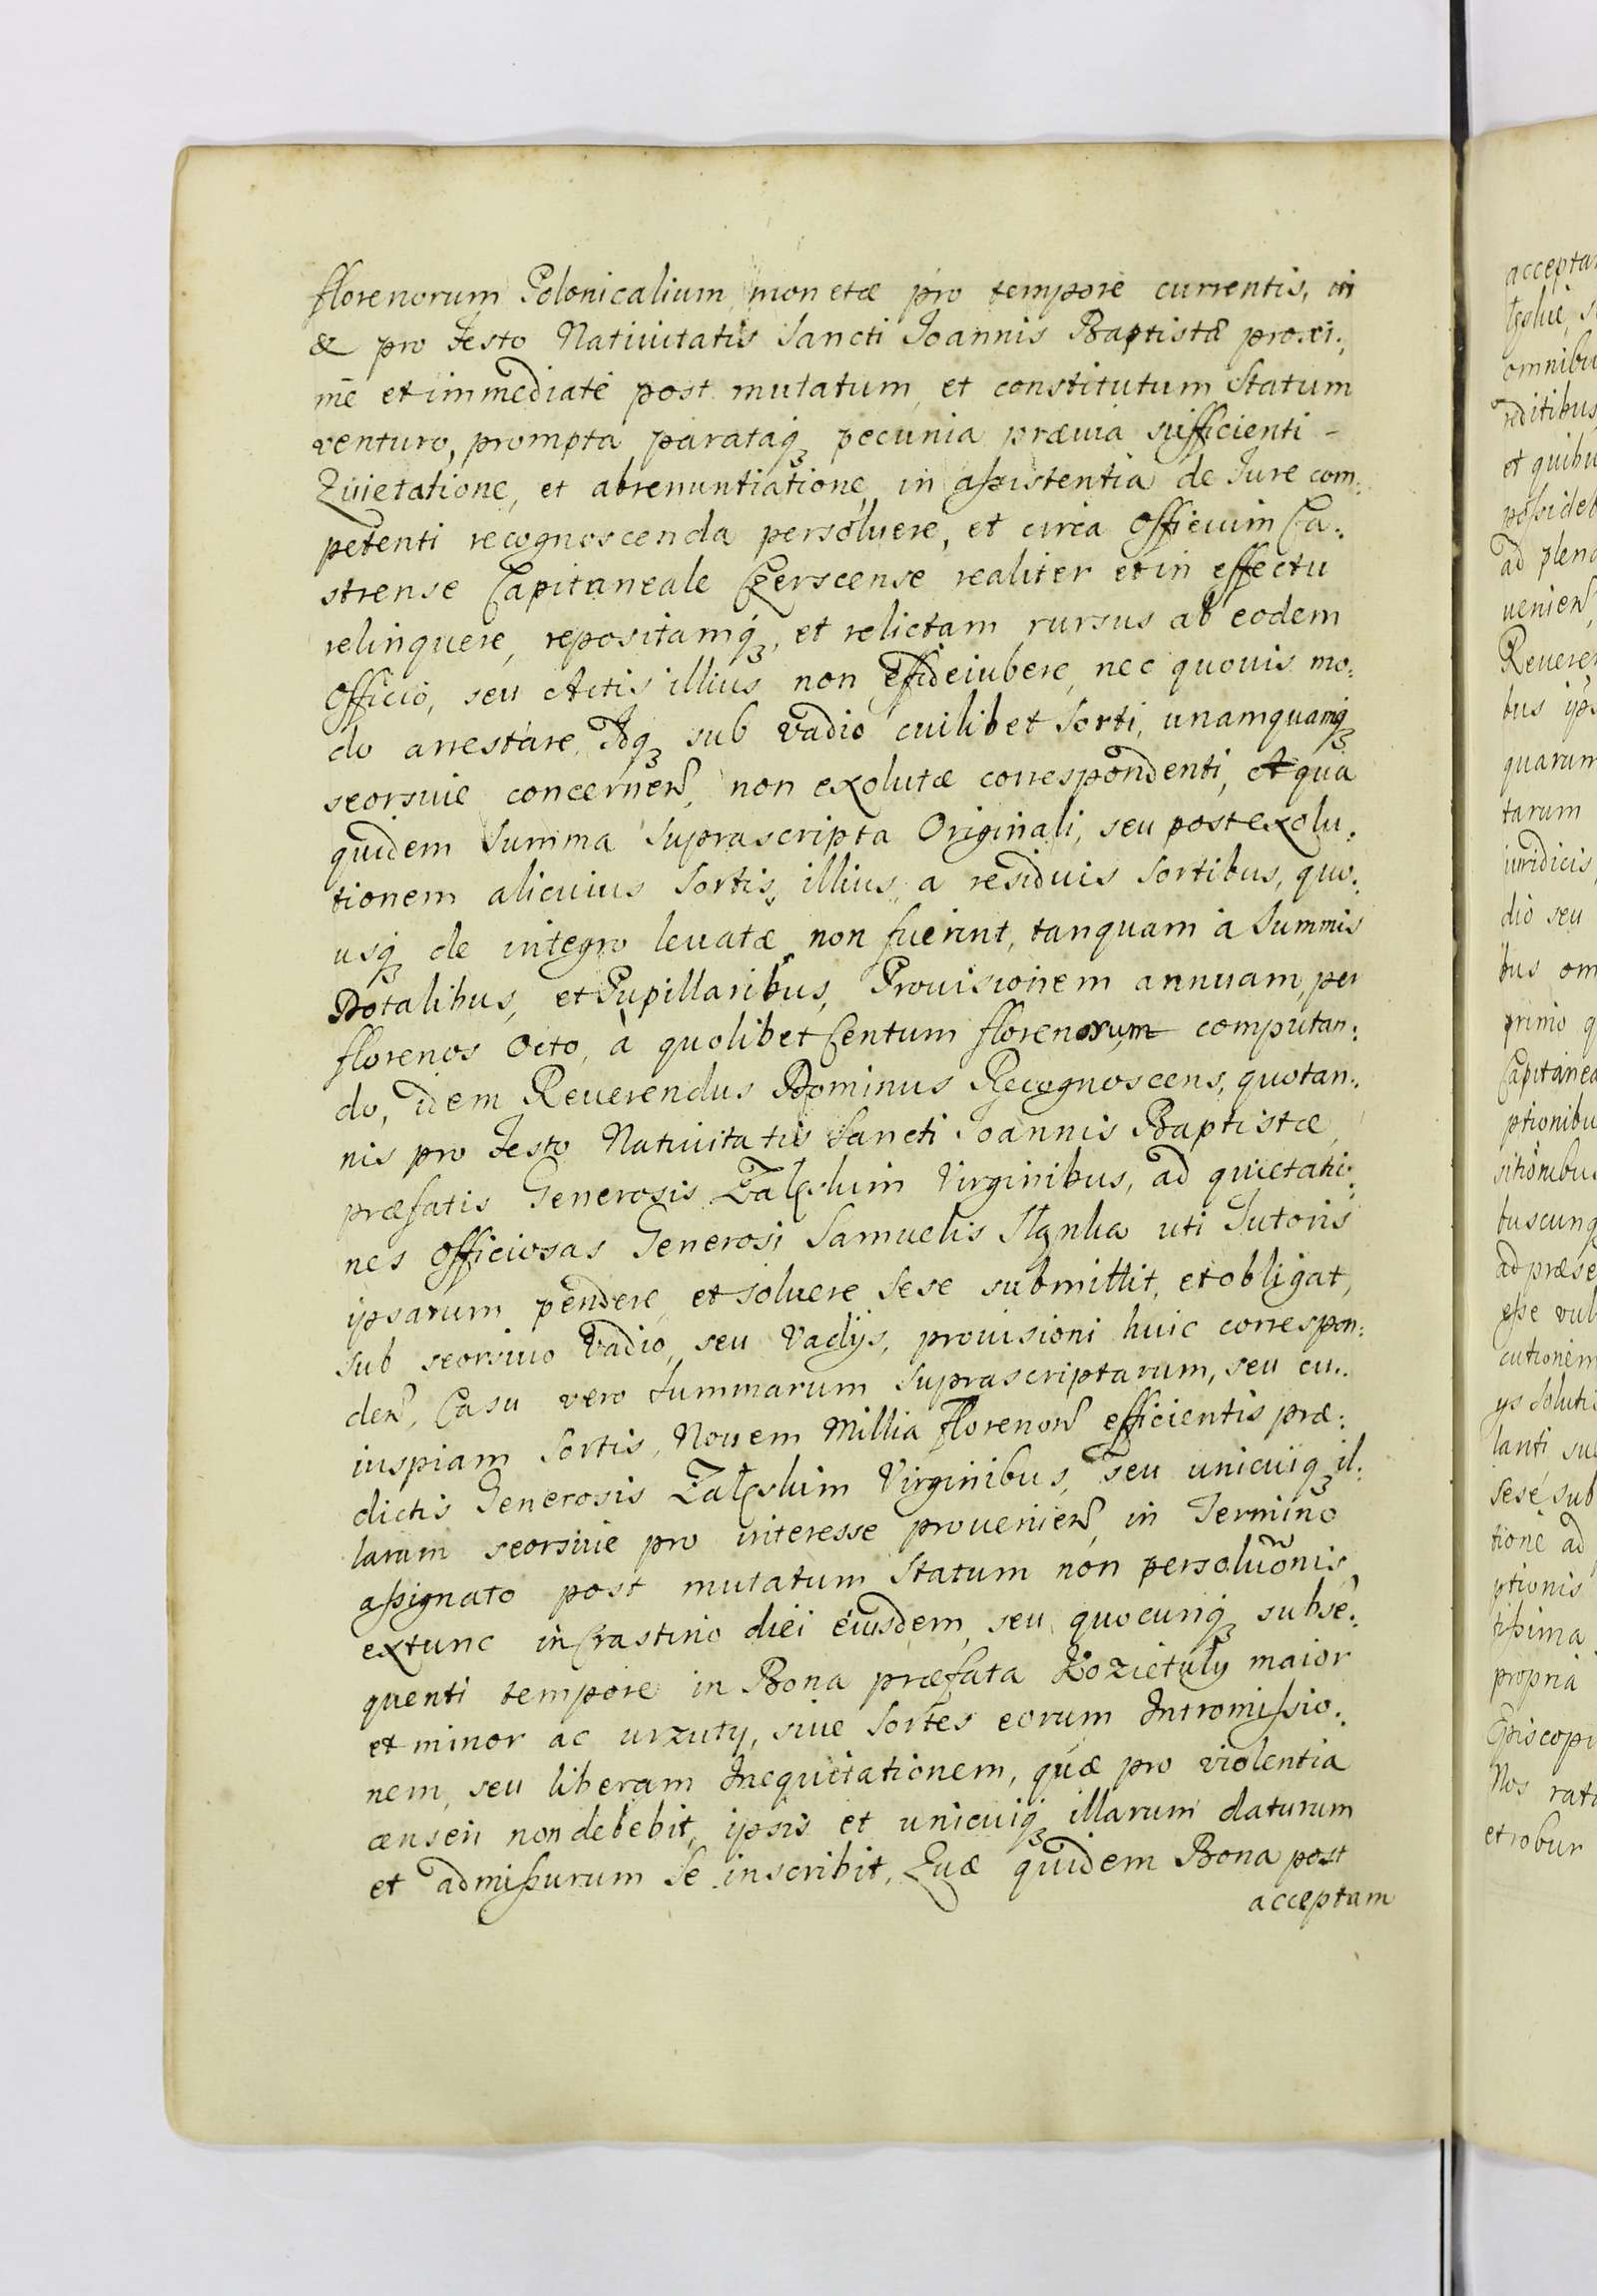 florenorum Polonicalium monetæ pro tempore currentis, in
& pro Festo Natiuitatis Sancti Joannis Baptistæ proxi:
mē et immediatè post mutatum et constitutum Statum
venturo, prompta parataq₃ pecunia præuia sufficienti -
Quietatione, et abrenuntiatione in assistentia de Jure com:
petenti recognoscenda persoluere, et circa Officium Ca:
strense Capitaneale Czerscense realiter et in effectu
relinquere, repositamq₃, et relictam rursus ab eodem
Officio, seu Actis illius non effideiubere, nec quouis mo:
do arrestare. Idq₃ sub vadio cuilibet Sorti, unamquamq₃
seorsiue concernen̄, non exolutæ correspondenti, A qua
quidem Summa Suprascripta Originali, seu post exolu:
tionem alicuius Sortis illius a residuis Sortibus, quo:
usq₃ de integro leuatæ non fuerint, tanquam à Summis
Dotalibus, et Pupillaribus, Prouisionem annuam, per
florenos Octo, à quolibet Centum florenorum computan:
do, idem Reuerendus Dominus Recognoscens, quotan:
nis pro Festo Natiuitatis Sancti Joannis Baptistæ,
præfatis Generosis Virginibus, ad quietatio:
nes Officiosas Generosi Samuelis uti Tutoris
ipsarum pendere, et soluere Sese submittit, et obligat,
sub seorsiuo Vadio, seu Vadijs, prouisioni huic correspon:
den̄, Casu vero Summarum Suprascriptarum, seu cu:
iuspiam Sortis, Nouem Millia florenor̄ efficientis præ:
dictis Generosis Virginibus, seu unicuiq₃ il:
larum seorsiue pro interesse prouenien̄, in Termino
assignato post mutatum Statum non persolūonis,
extunc in Crastino diei eiusdem, seu quocunq₃ subse:
quenti tempore in Bona præfata Kozietuly maior
et minor ac urzuty, siue Sortes eorum Intromissio:
nem, seu liberam Inequitationem, quæ pro violentia
censeri non debebit, ipsis et unicuiq₃ illarum daturum
et admissurum Se inscribit. Quæ quidem Bona post
acceptam